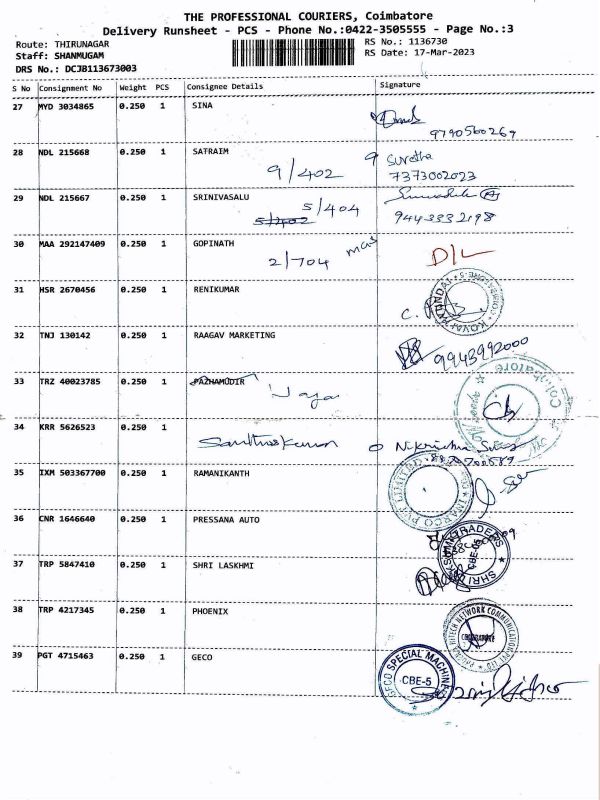 THE PROFESSIONAL COURIERS, Coimbatore
Delivery Runsheet - PCS - Phone No.:0422-3505555 - Page No.:3
Route: THIRUNAGAR
RS No.: 1136730
Staff: SHANMUGAM
RS Date: 17-Mar-2023
DRS No.: DCJB113673003
S No Consignment No Weight PCS Consignee Details Signature
27 MYD 3034865 0.250 1 SINA
9790560269
28 NDL 215668 0.250 1 SATRAIM
9/402
Suretha
7373002023
29 NDL 215667 0.250 1 SRINIVASALU
5/404
5/402
9443332198
30 MAA 292147409 0.250 1 GOPINATH
2/704
D/L
31 HSR 2670456 0.250 1 RENIKUMAR
KOVAI MUNDAI
32 TNJ 130142 0.250 1 RAAGAV MARKETING
9943992000
33 TRZ 40023785 0.250 1 PAZHAMUDIR
Coimbatore
34 KRR 5626523 0.250 1
Santhoskumar
35 IXM 503367700 0.250 1 RAMANIKANTH
PVT LIMITED
36 CNR 1646640 0.250 1 PRESSANA AUTO
37 TRP 5847410 0.250 1 SHRI LASKHMI
TRADERS
SHRI
38 TRP 4217345 0.250 1 PHOENIX
HITECH NETWORK COMMUNICATION PVT LTD
COIMBATORE
39 PGT 4715463 0.250 1 GECO
SPECIAL MACHINES
CBE-5